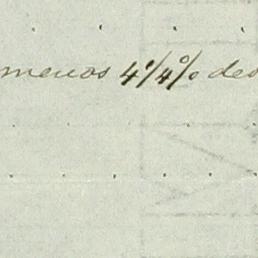 menos 4 1/4 % des